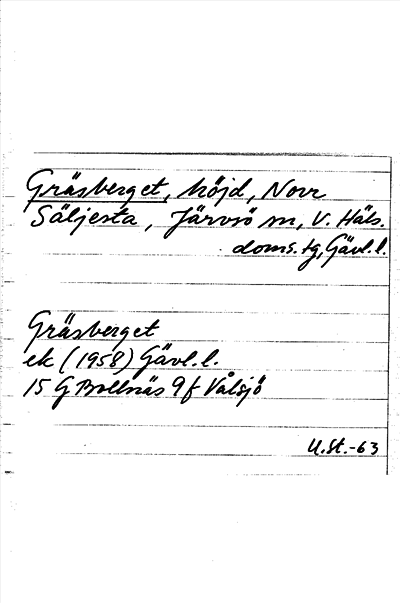 Gräsberget, höjd, Norr
Säljesta, Järvsö sn, V. Häls.
doms. tg, Gävl.l.
Gräsberget
ek (1958) Gävl.l.
15 G Bollnäs 9f Vålsjö
U.St.-63